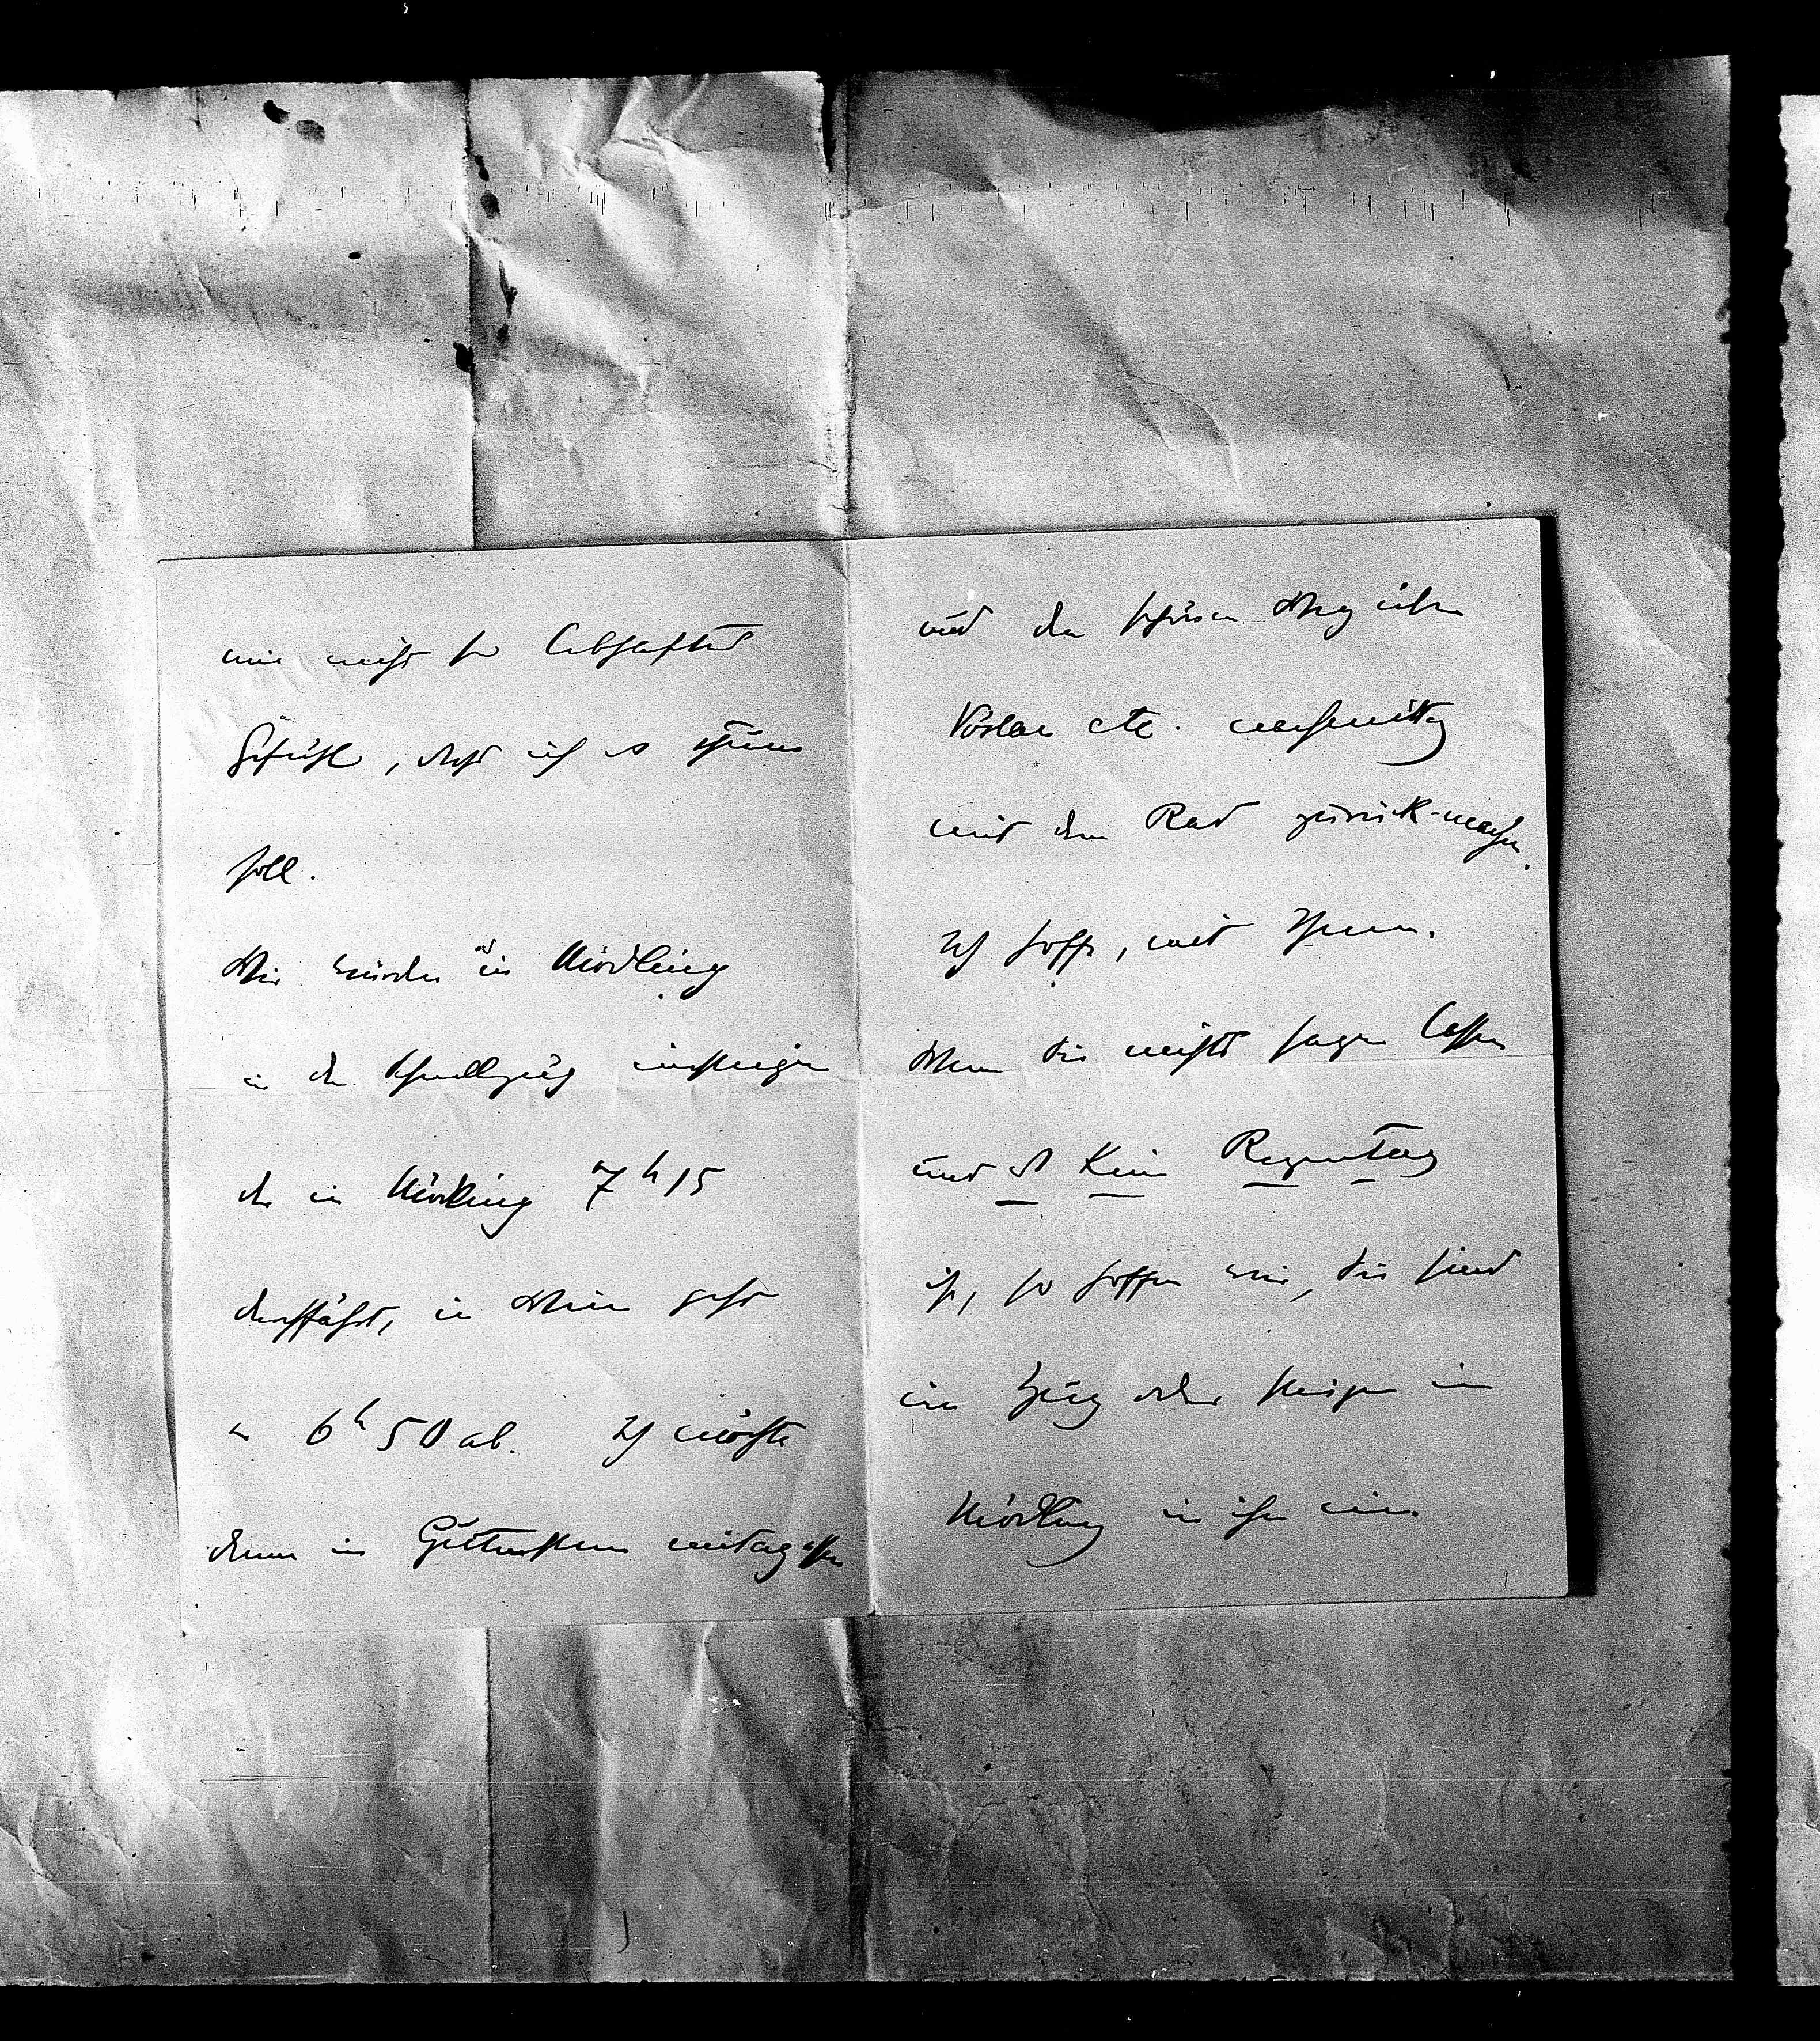 mir nicht so lebhaftes
Gefühl, daß ich es thun
soll.
Wir würden in Mödling
in den Schnellzug einsteigen
der in Mödling 7h 15
durchfährt, in Wien geht
er 6h 50 ab. Ich möchte
dann in Guttenstein mitagessen
und den schönen Weg über
Vöslau etc. nachmittag
mit dem Rad zurück-machen.
Ich hoffe, mit Ihnen.
Wenn Sie nichts sagen lassen
und es kein Regentag
ist, so hoffen wir, Sie sind
im Zug oder steigen in
Mödling in ihn ein.